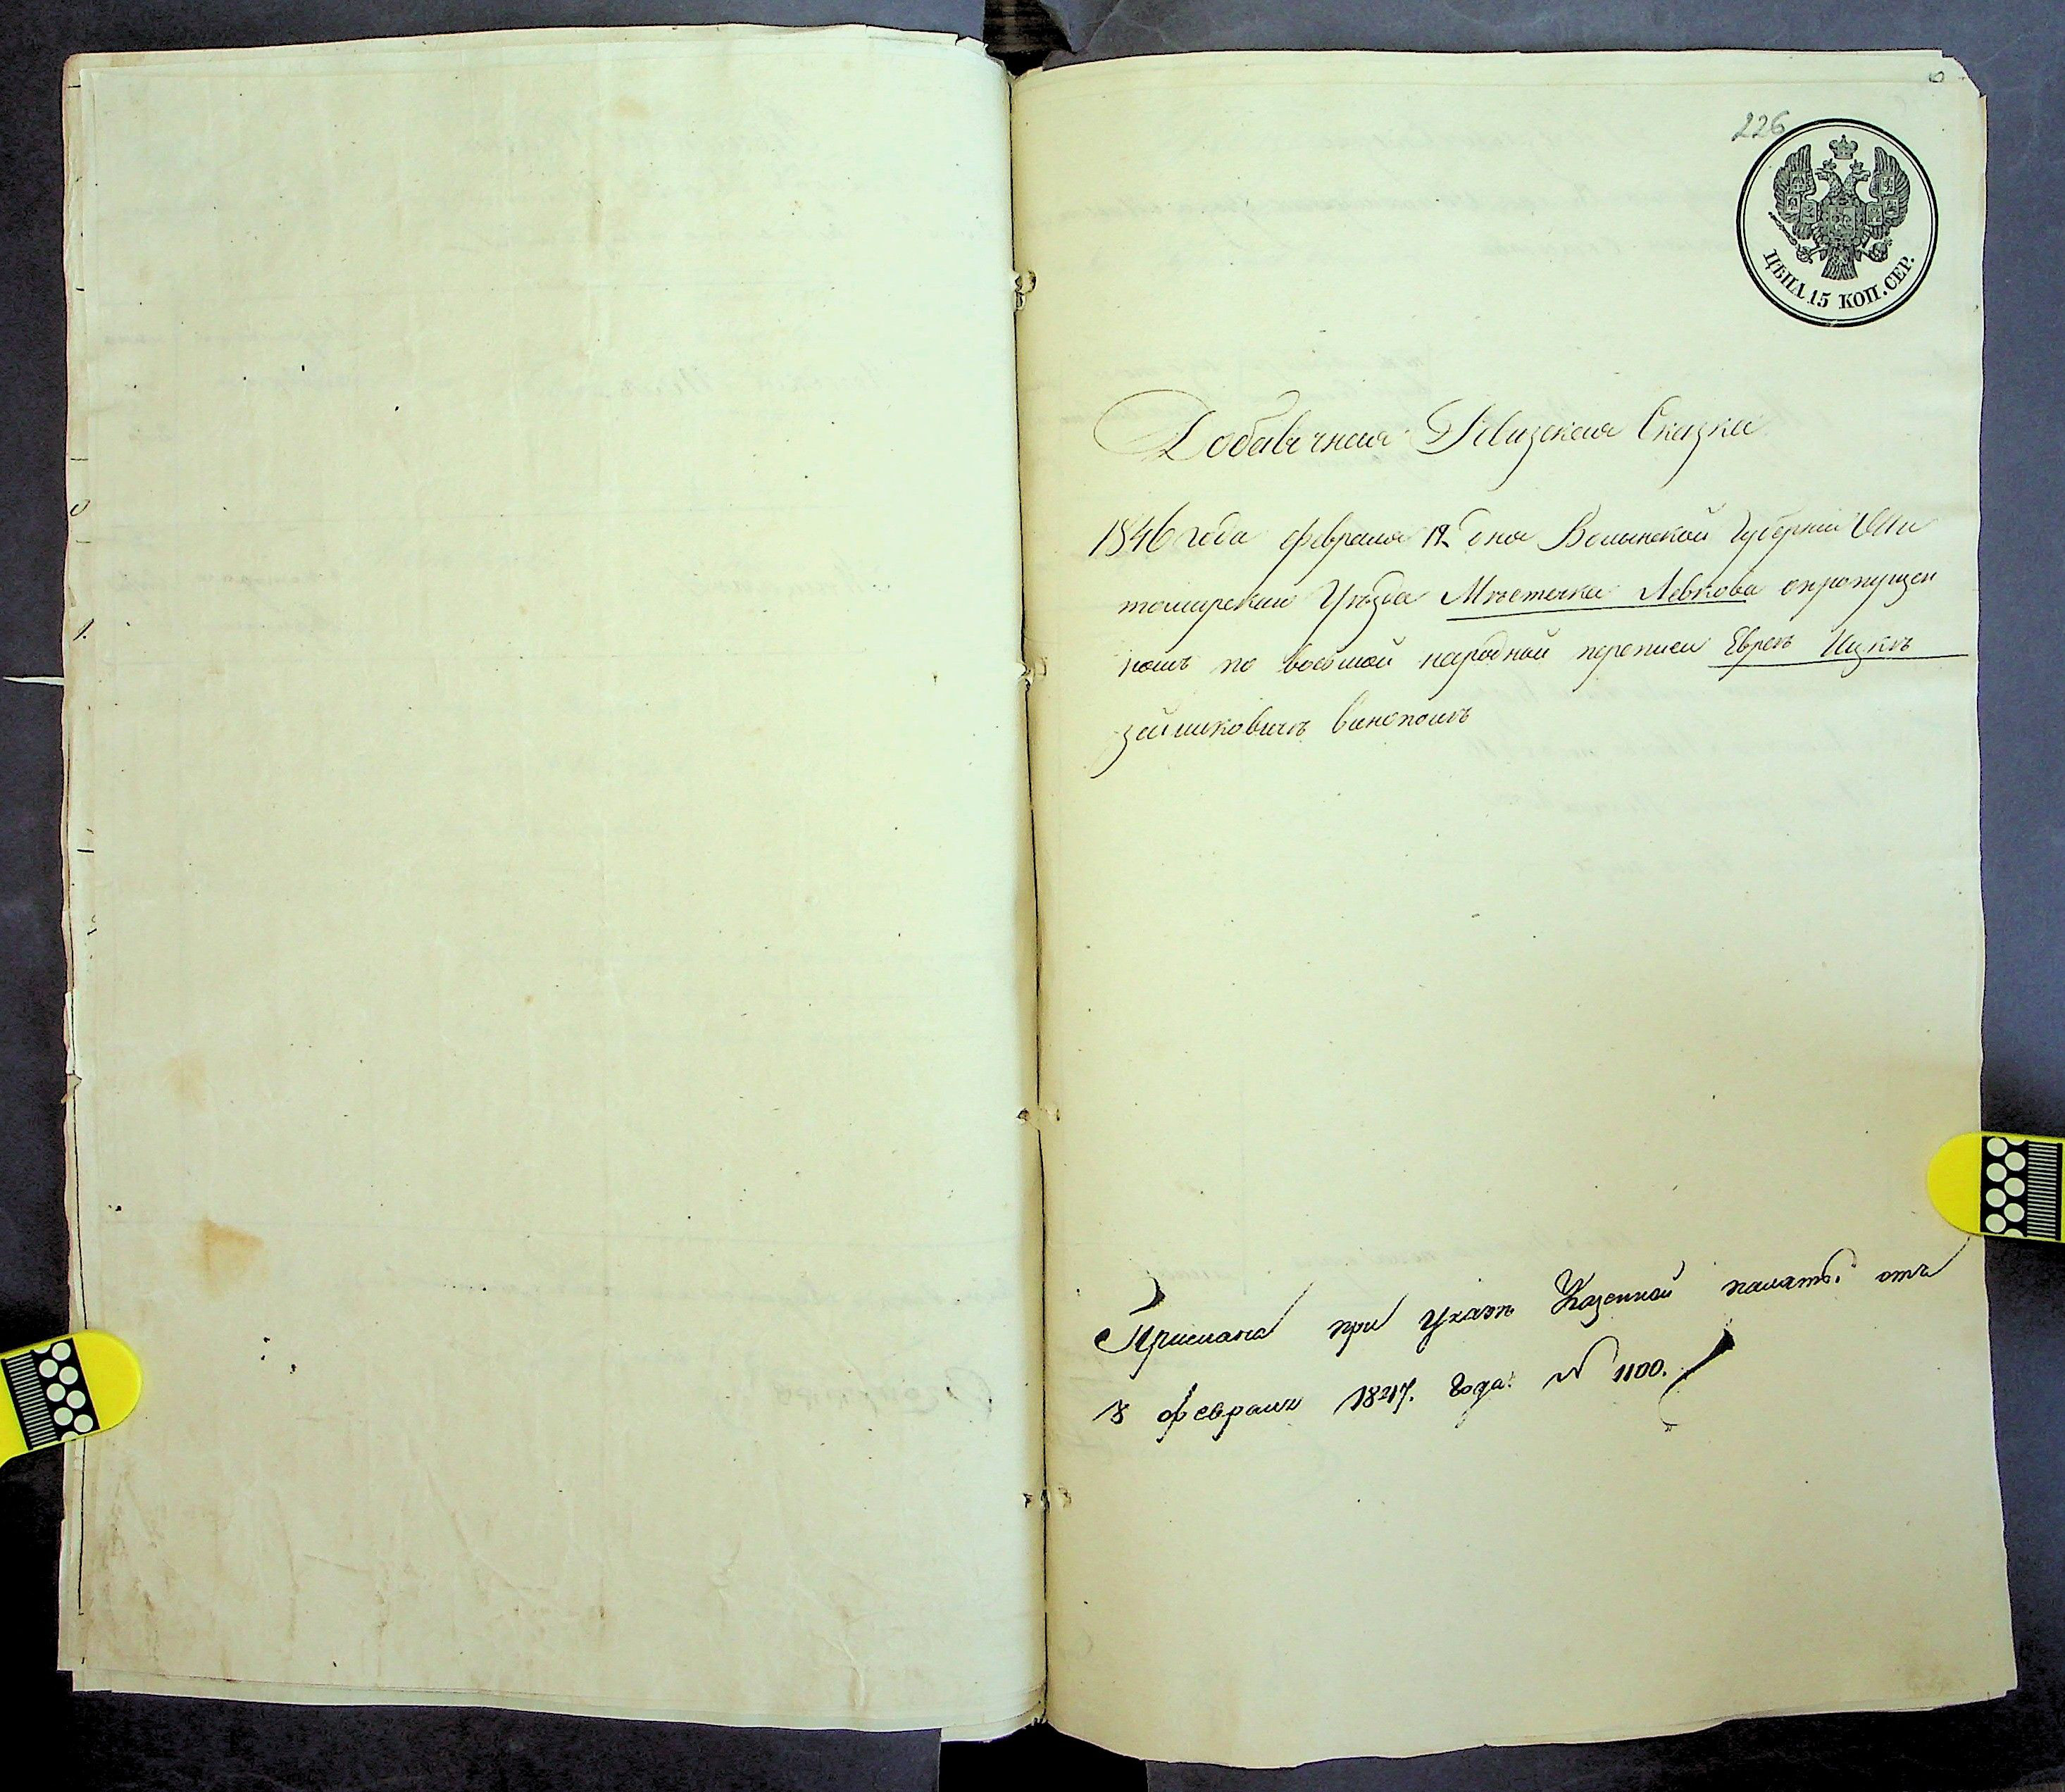 226
ЦѢНА 15 КОП. СЕР.
Добавочная Ревизская Сказка
1846 года февраля 12 дня Волынской Губернии Жи
томирскаго Уѣзда Мѣстечка Левкова опропущен
номъ по восьмой народной переписи Евреѣ Ицкѣ
Прислана при Указѣ Казенной палаты отъ
8 февраля 1847. Года. № 1100.